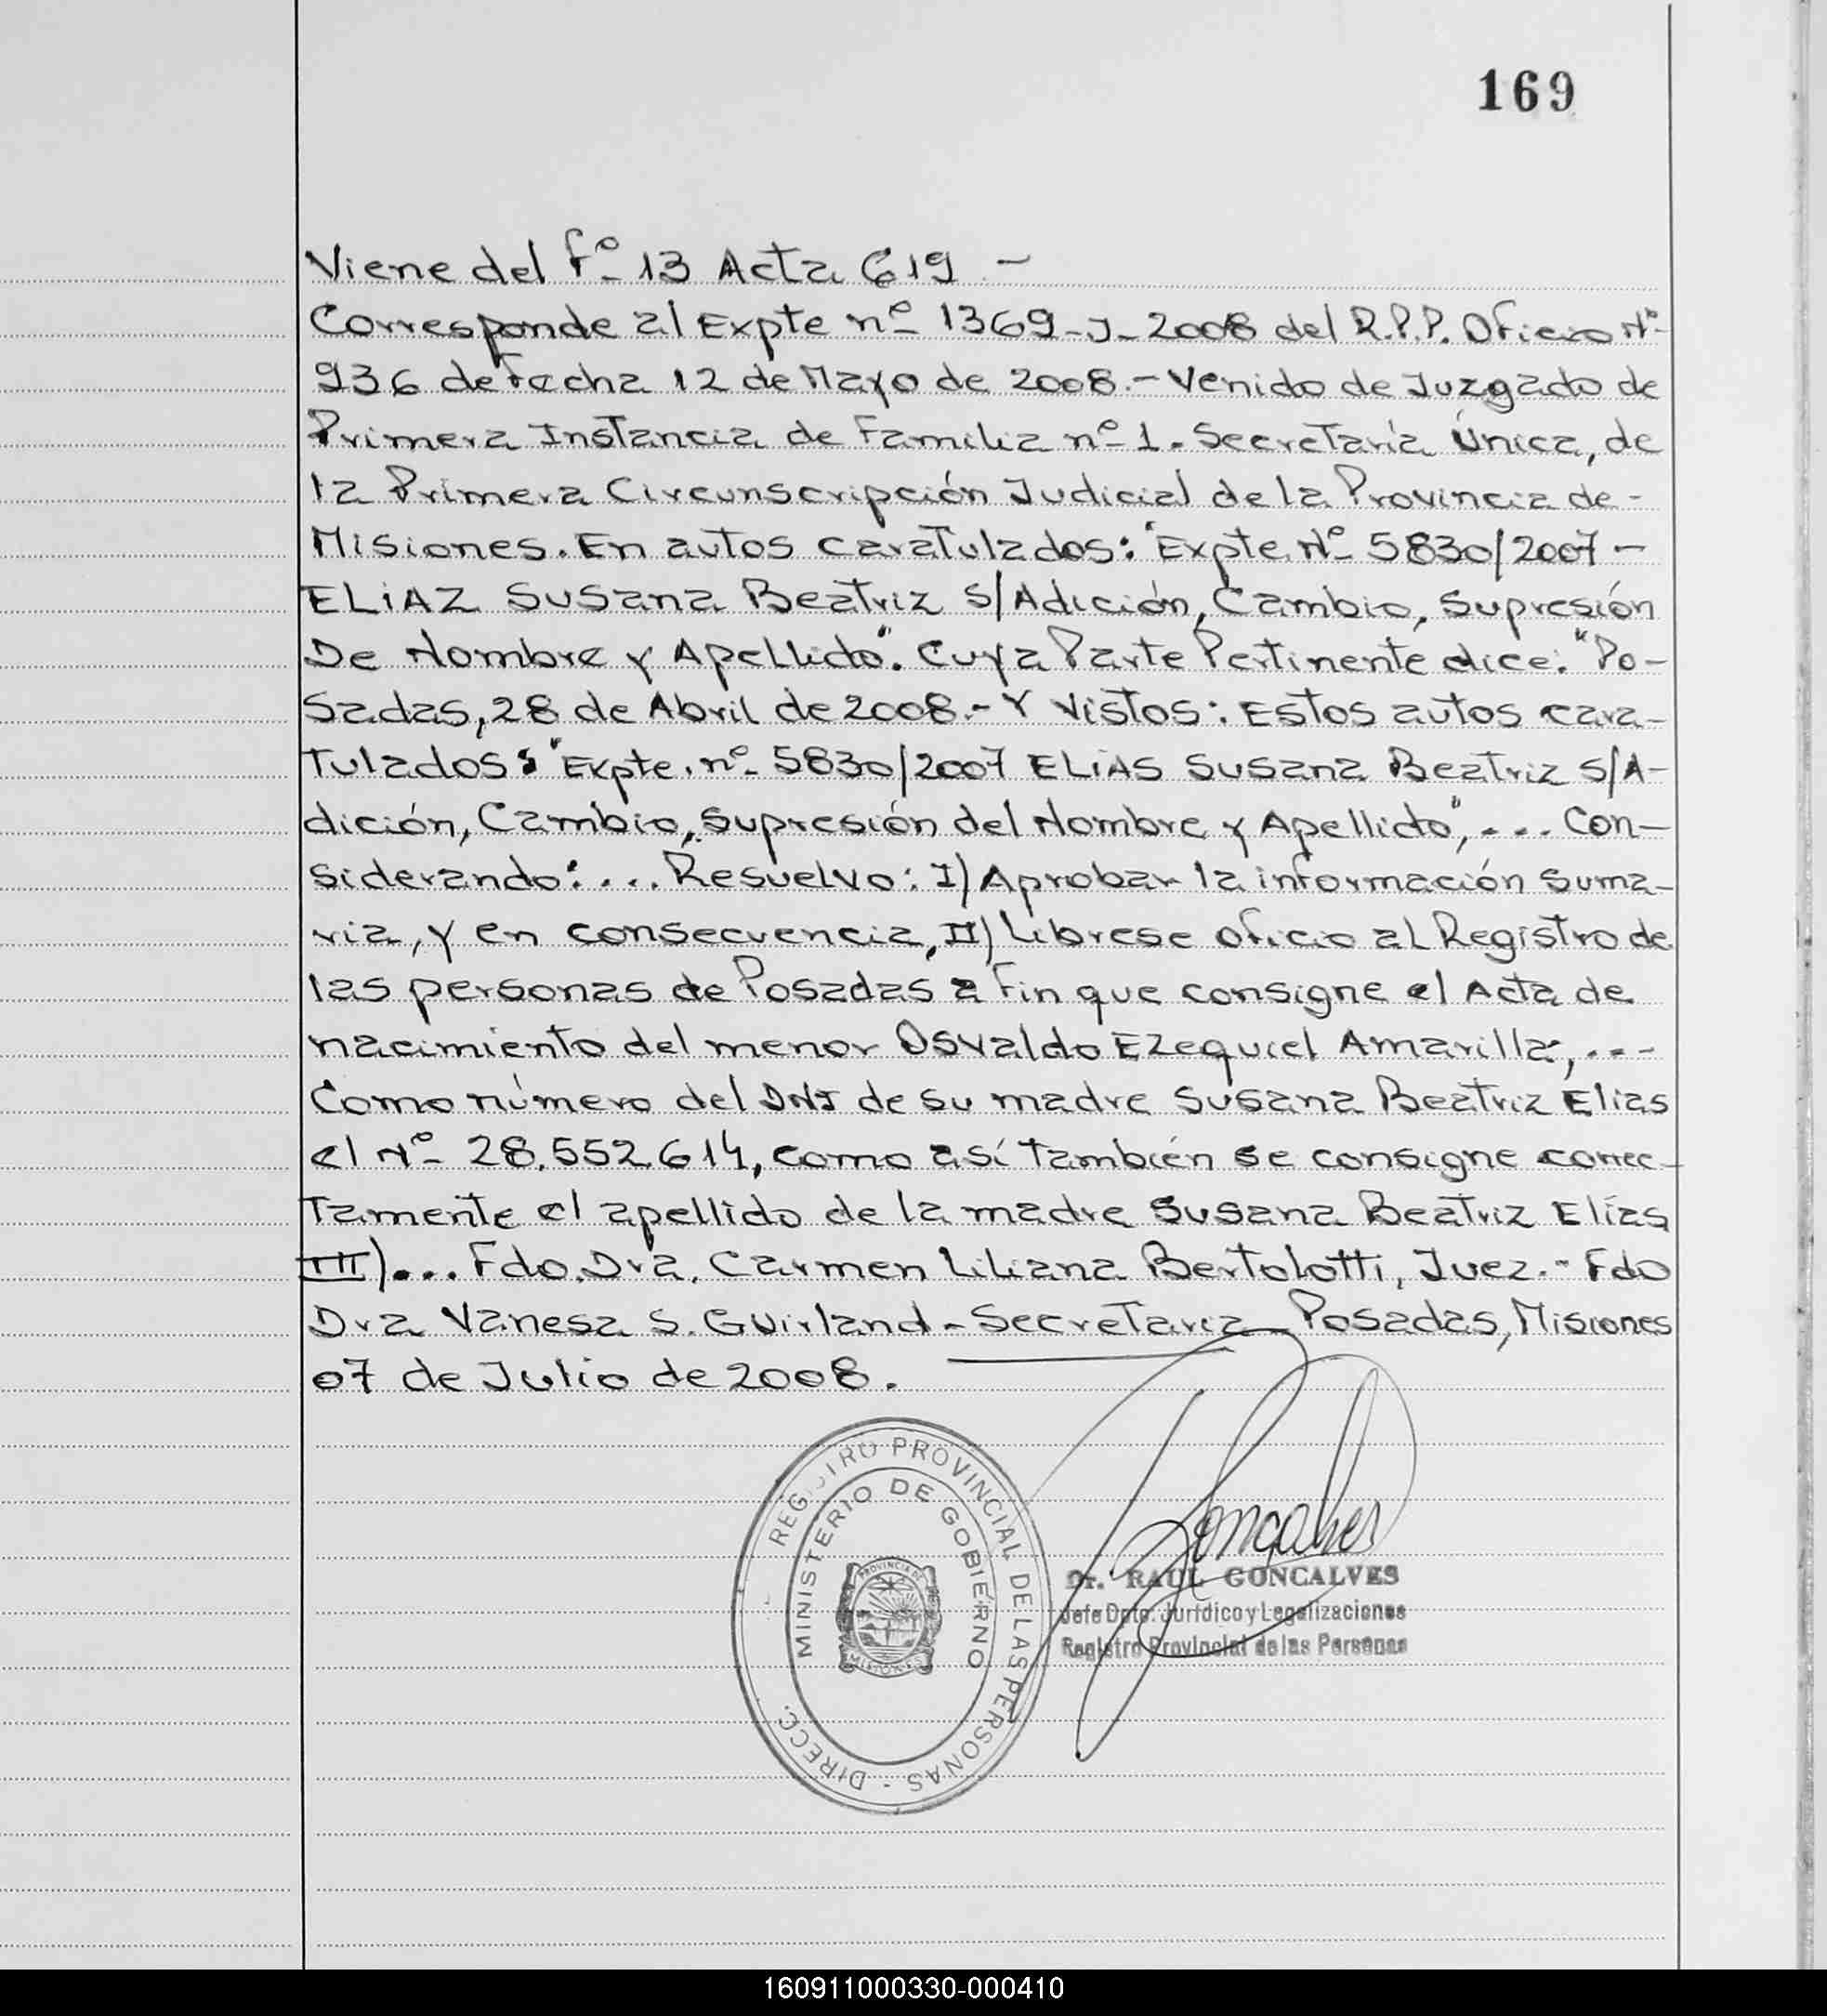 169
Viene del fº 13 Acta 619 -
Corresponde al Expte nº 1369-J-2008 del R.P.P. Oficio Nº
936 de Fecha 12 de Mayo de 2008.- Venido de Juzgado de
Primera Instancia de Familia nº 1. Secretaría Única, de
la Primera Circunscripción Judicial de la Provincia de-
Misiones. En autos caratulados: "Expte. Nº 5830/2007 -
ELIAZ Susana Beatriz S/Adición, Cambio, Supresión
De Nombre y Apellido". Cuya Parte Pertinente dice: "Po-
sadas, 28 de Abril de 2008.- Y Vistos: Estos autos cara-
Tulados: "Expte. nº 5830/2007 ELIAS Susana Beatriz S/A-
dición, Cambio, Supresión del Nombre y Apellido", ... Con-
siderando: ... Resuelvo: I) Aprobar la información suma-
ria, y en consecuencia, II) Librese oficio al Registro de
las personas de Posadas a Fin que consigne el Acta de
nacimiento del menor Osvaldo Ezequiel Amarilla, ...-
Como número del DNI de su madre Susana Beatriz Elias
el Nº 28.552.614, como así también se consigne correc-
Tamente el apellido de la madre Susana Beatriz Elías
III)... Fdo. Dra. Carmen Liliana Bertolotti, Juez.- Fdo
Dra Vanesa S. Guirland - Secretaria - Posadas, Misiones
07 de Julio de 2008.
REGISTRO PROVINCIAL DE LAS PERSONAS - DIRECC.
MINISTERIO DE GOBIERNO
PROVINCIA DE
MISIONES
Goncalves
Dr. RAUL GONCALVES
Jefe Dpto. Jurídico y Legalizaciones
Registro Provincial de las Personas
160911000330-000410